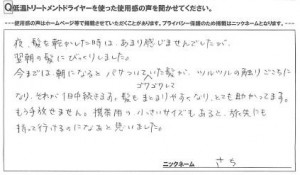 Q低温トリートメントドライヤーを使った使用感の声を聞かせてください。
使用感の声はホームページ等で掲載させていただくことがあります。プライバシー保護のため掲載はニックネームとなります。
夜、髪を乾かした時は、あまり感じませんでしたが、
翌朝の髪にびっくりしました。
今までは、朝になるとパサついていた髪が、ツルツルの触りごこちに
ゴワゴワして
なり、それが1日中続きます。髪もまとまりやすくなり、とても助かってます。
もう手放せません。携帯用の小さいサイズもあると、旅先にも
持って行けるのになぁと思いました。
ニックネーム さち